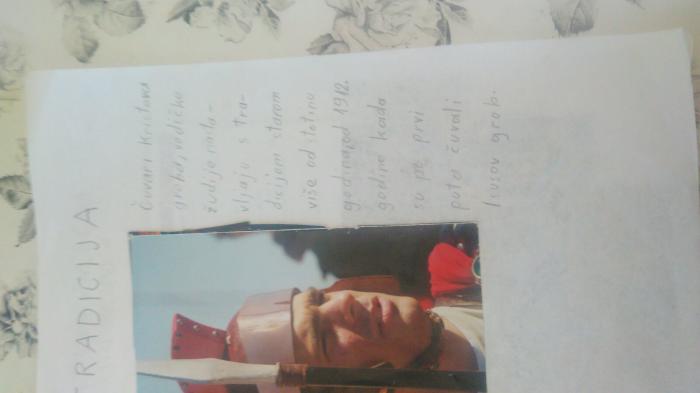 TRADICIJA
Čuvari Kristova
groba, vodičke
žudije nasta-
vljaju s tra-
dicijom starom
više od stotinu
godina, od 1912.
godine kada
su po prvi
puta čuvali
Isusov grob.